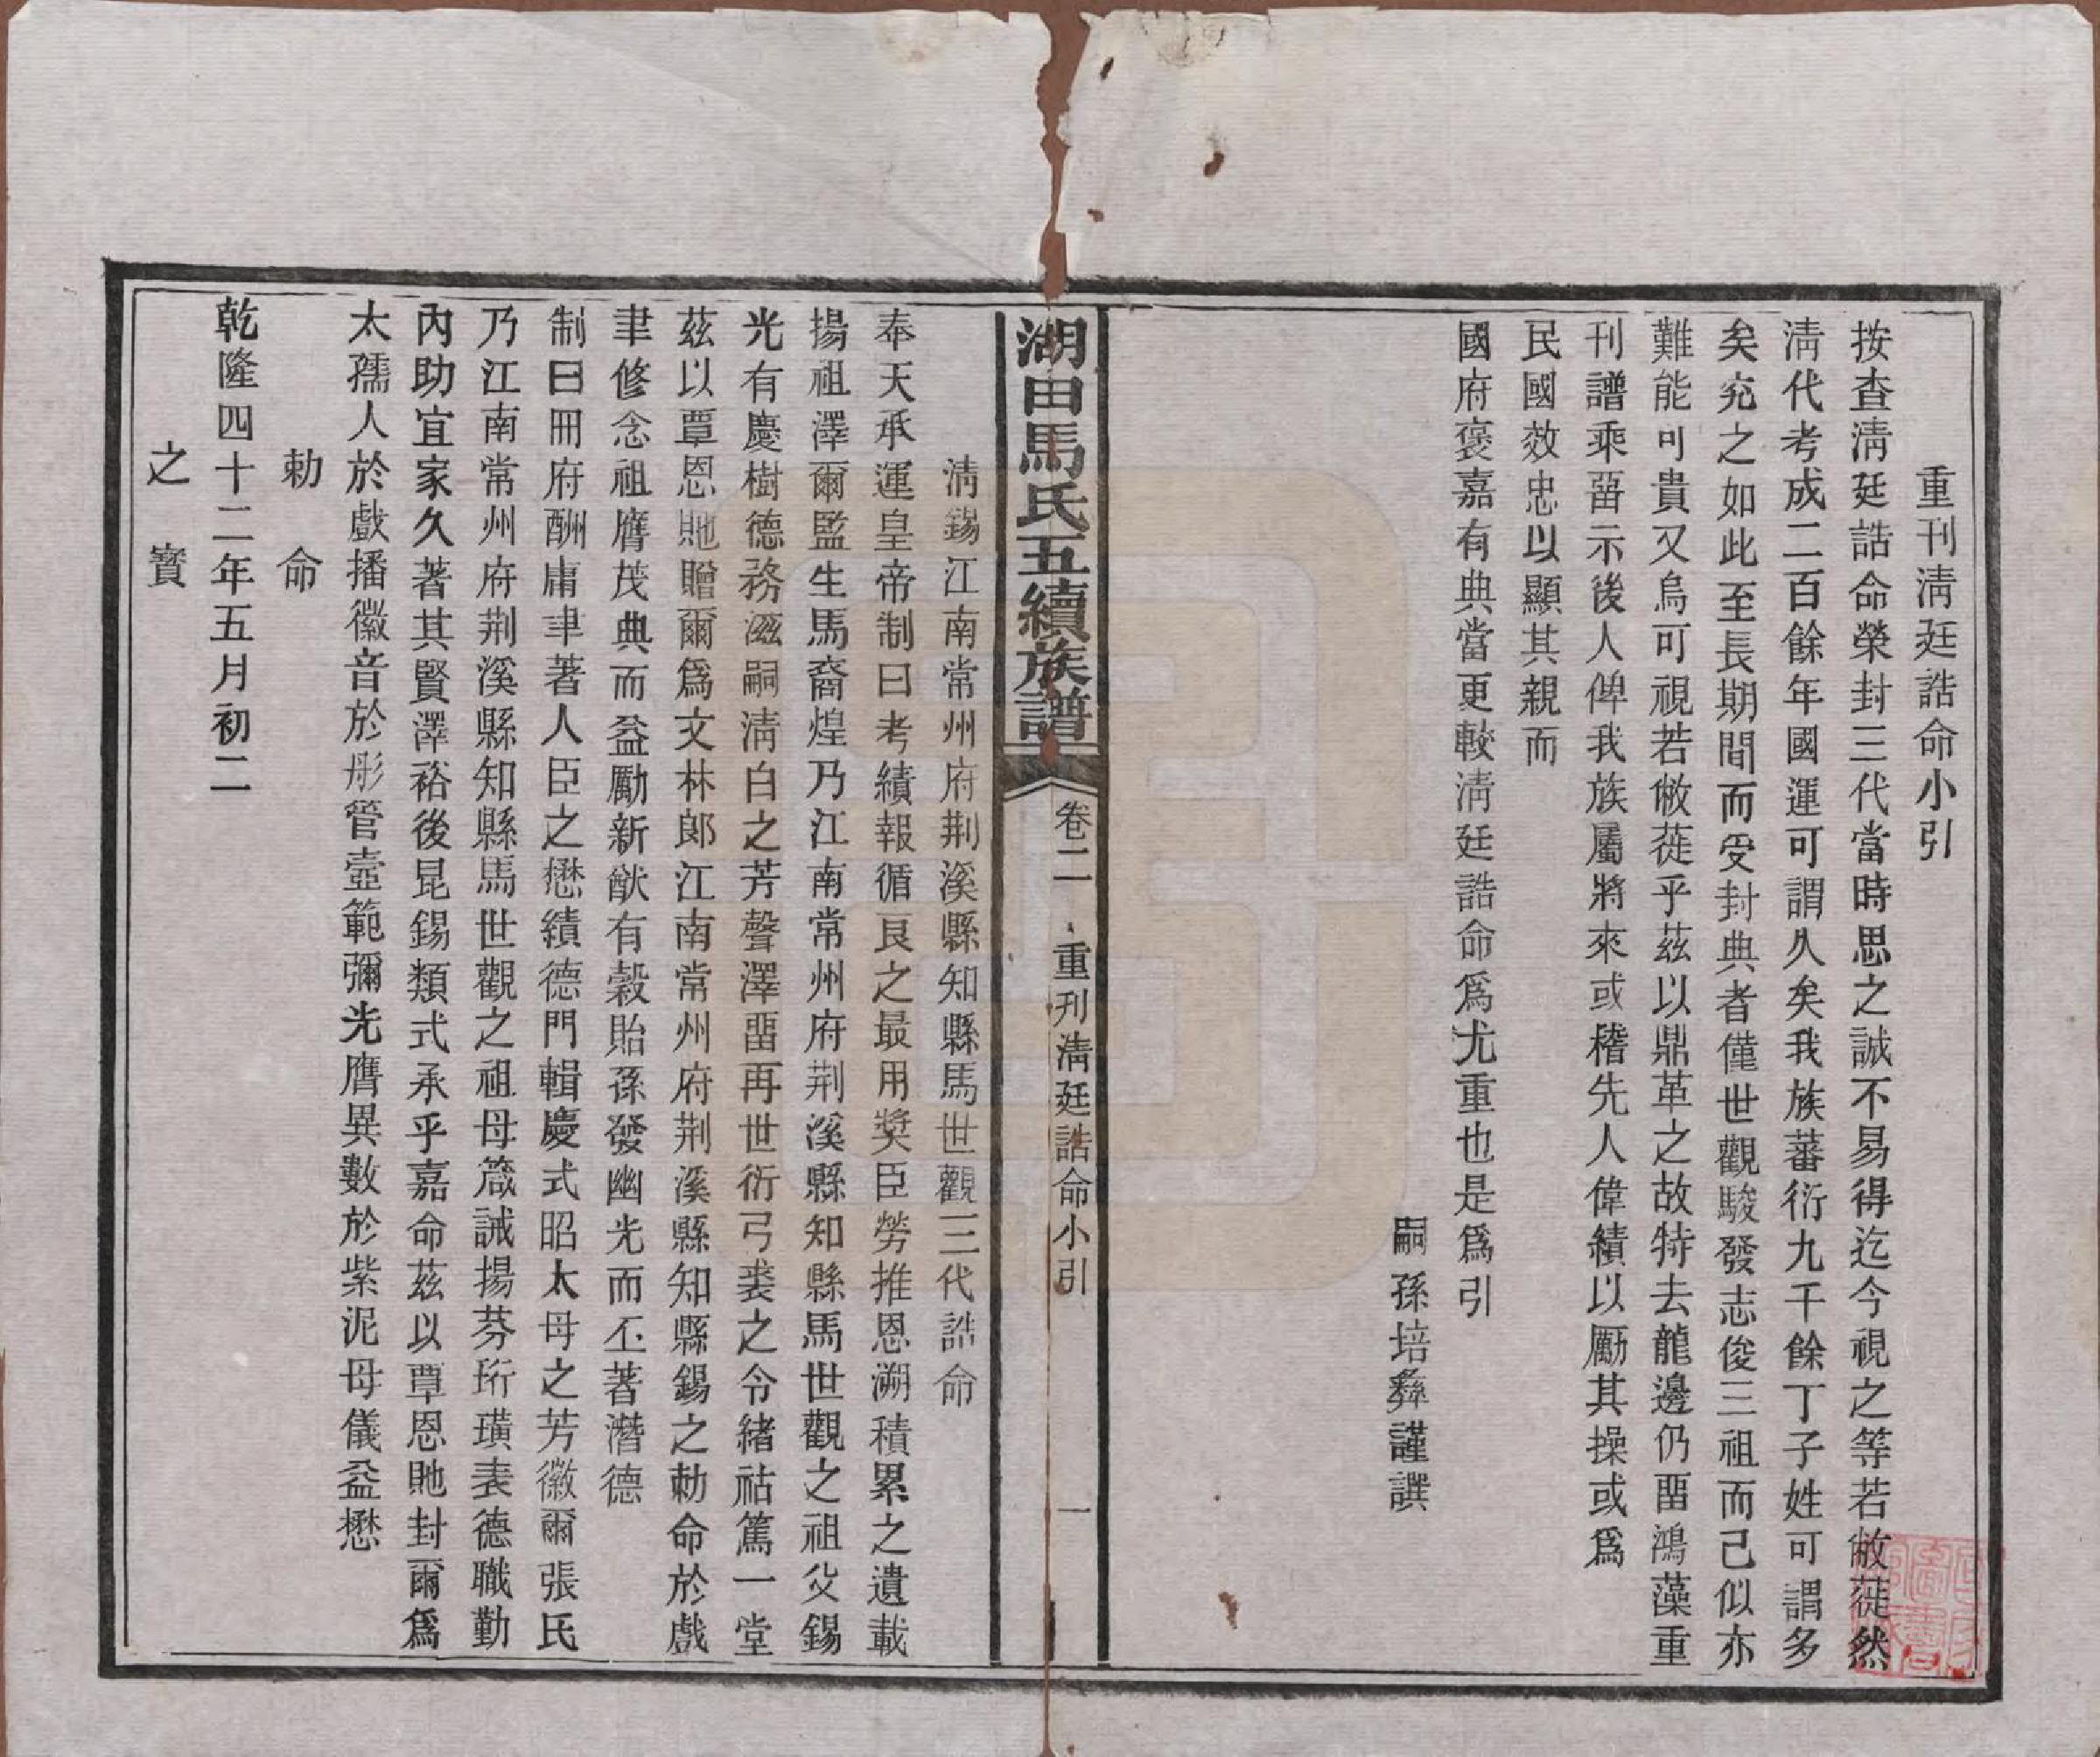 重刊淸廷誥命小引
按查淸廷誥命榮封三代當時思之誠不易得迄今視之等若敝蓰然
淸代考成二百餘年國運可謂久矣我族蕃衍九千餘丁子姓可謂多
矣究之如此至長期間而受封典者僅世觀駿發志俊三祖而己似亦
難能可貴又烏可視若敝蓰乎茲以鼎革之故特去龍邊仍畱鴻藻重
刊譜乘畱示後人俾我族屬將來或稽先人偉績以勵其操或爲
民國效忠以顯其親而
國府褒嘉有典當更較淸廷誥命爲尤重也是爲引
嗣孫培彝謹譔
湖田馬氏五續族譜
卷二
重刊淸廷誥命小引
一
淸錫江南常州府荆溪縣知縣馬世觀三代誥命
奉天承運皇帝制曰考績報循良之最用獎臣勞推恩溯積累之遺載
揚祖澤爾監生馬裔煌乃江南常州府荆溪縣知縣馬世觀之祖父錫
光有慶樹德務滋嗣淸白之芳聲澤畱再世衍弓裘之令緒祜篤一堂
茲以覃恩貤贈爾爲文林郎江南常州府荆溪縣知縣錫之勅命於戲
聿修念祖膺茂典而益勵新猷有穀貽孫發幽光而丕著潛德
制曰冊府酬庸聿著人臣之懋績德門輯慶式昭太母之芳徽爾張氏
乃江南常州府荆溪縣知縣馬世觀之祖母箴誡揚芬珩璜表德職勤
內助宜家久著其賢澤裕後昆錫類式承乎嘉命茲以覃恩貤封爾爲
太孺人於戲播徽音於彤管壼範彌光膺異數於紫泥母儀益懋
勅命
乾隆四十二年五月初二
之寶